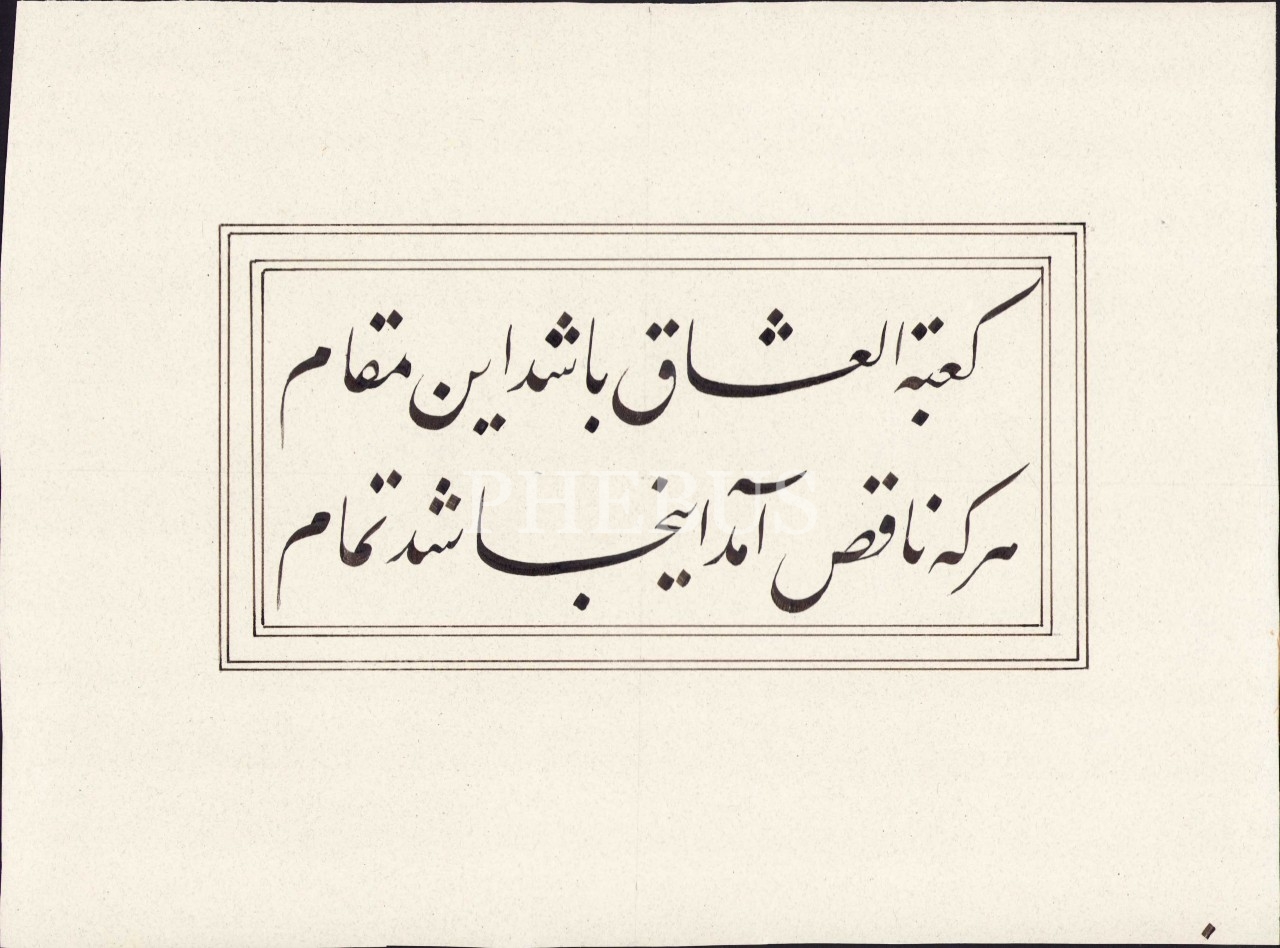 كعبة العشاق باشد این مقام
هر که ناقص آمد اینجا شد تمام
PHEBUS